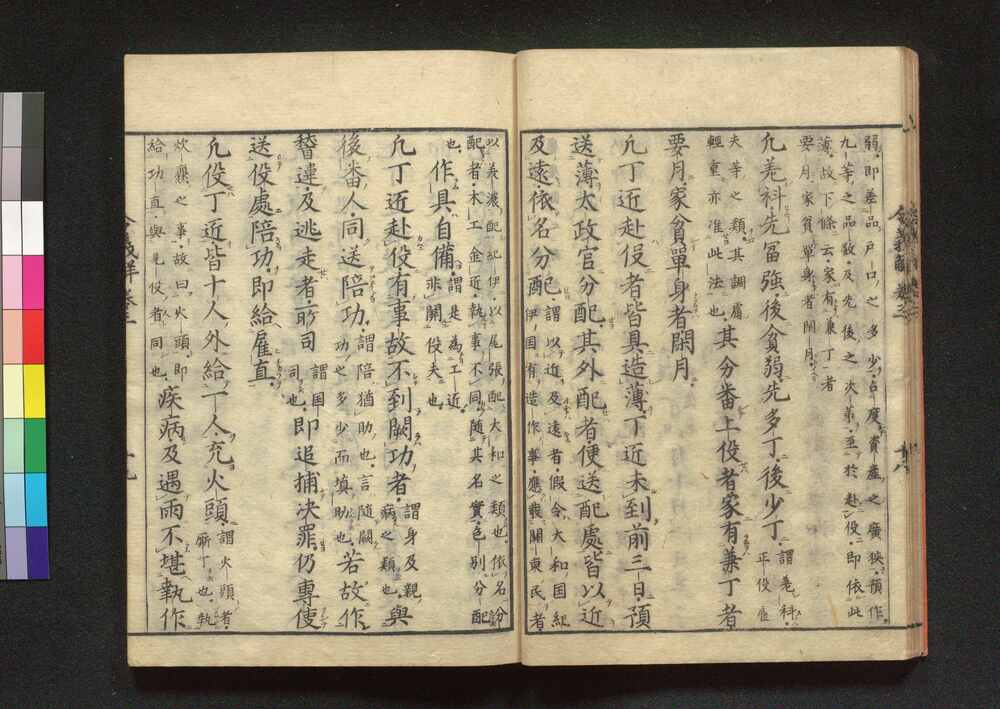 弱。即差品戸口之多少。占度資産之廣狹。預作
九等之品数。及先後之次第。至於赴役。即依此
薄。故下條云。家有兼丁者
要月。家貧單身者閑月。
凢差科先冨強。後貧弱。先多丁。後少丁。謂差科。正役雇
夫等之類。其調庸
輕重亦准此法也。其分番上役者。家有兼丁者
要月。家貧單身者閑月
凢丁近赴役者。皆具造薄。丁近未到前三日。預
送薄太政官分配。其外配者。便送配處。皆以近
及遠。依名分配。謂以近及遠者。假令大和国紀
伊国有造作事。應農關東民者。
以美濃配紀伊。以尾張配大和之類也。依名分
配者。木工金近。執事不同。随其名實。色別分配
也。作具自備。謂是為工近。非關役夫也。
凢丁近赴役有事故。不到闕功者。謂身及親病之類也。與
後番人同送陪功。謂陪猶助也。言随闕功之多少而填助也。若故作
稽違。及逃走者。所司謂国司也。即追捕决罪。仍專使
送役處陪功。即給雇直。
凢役丁近。皆十人外給一人。充火頭。謂火頭者。廝丁也。執
炊爨之事。故曰火頭。即
給功直。與見役者同也。疾病及遇雨不堪執作
令義解 巻三
十八
十九